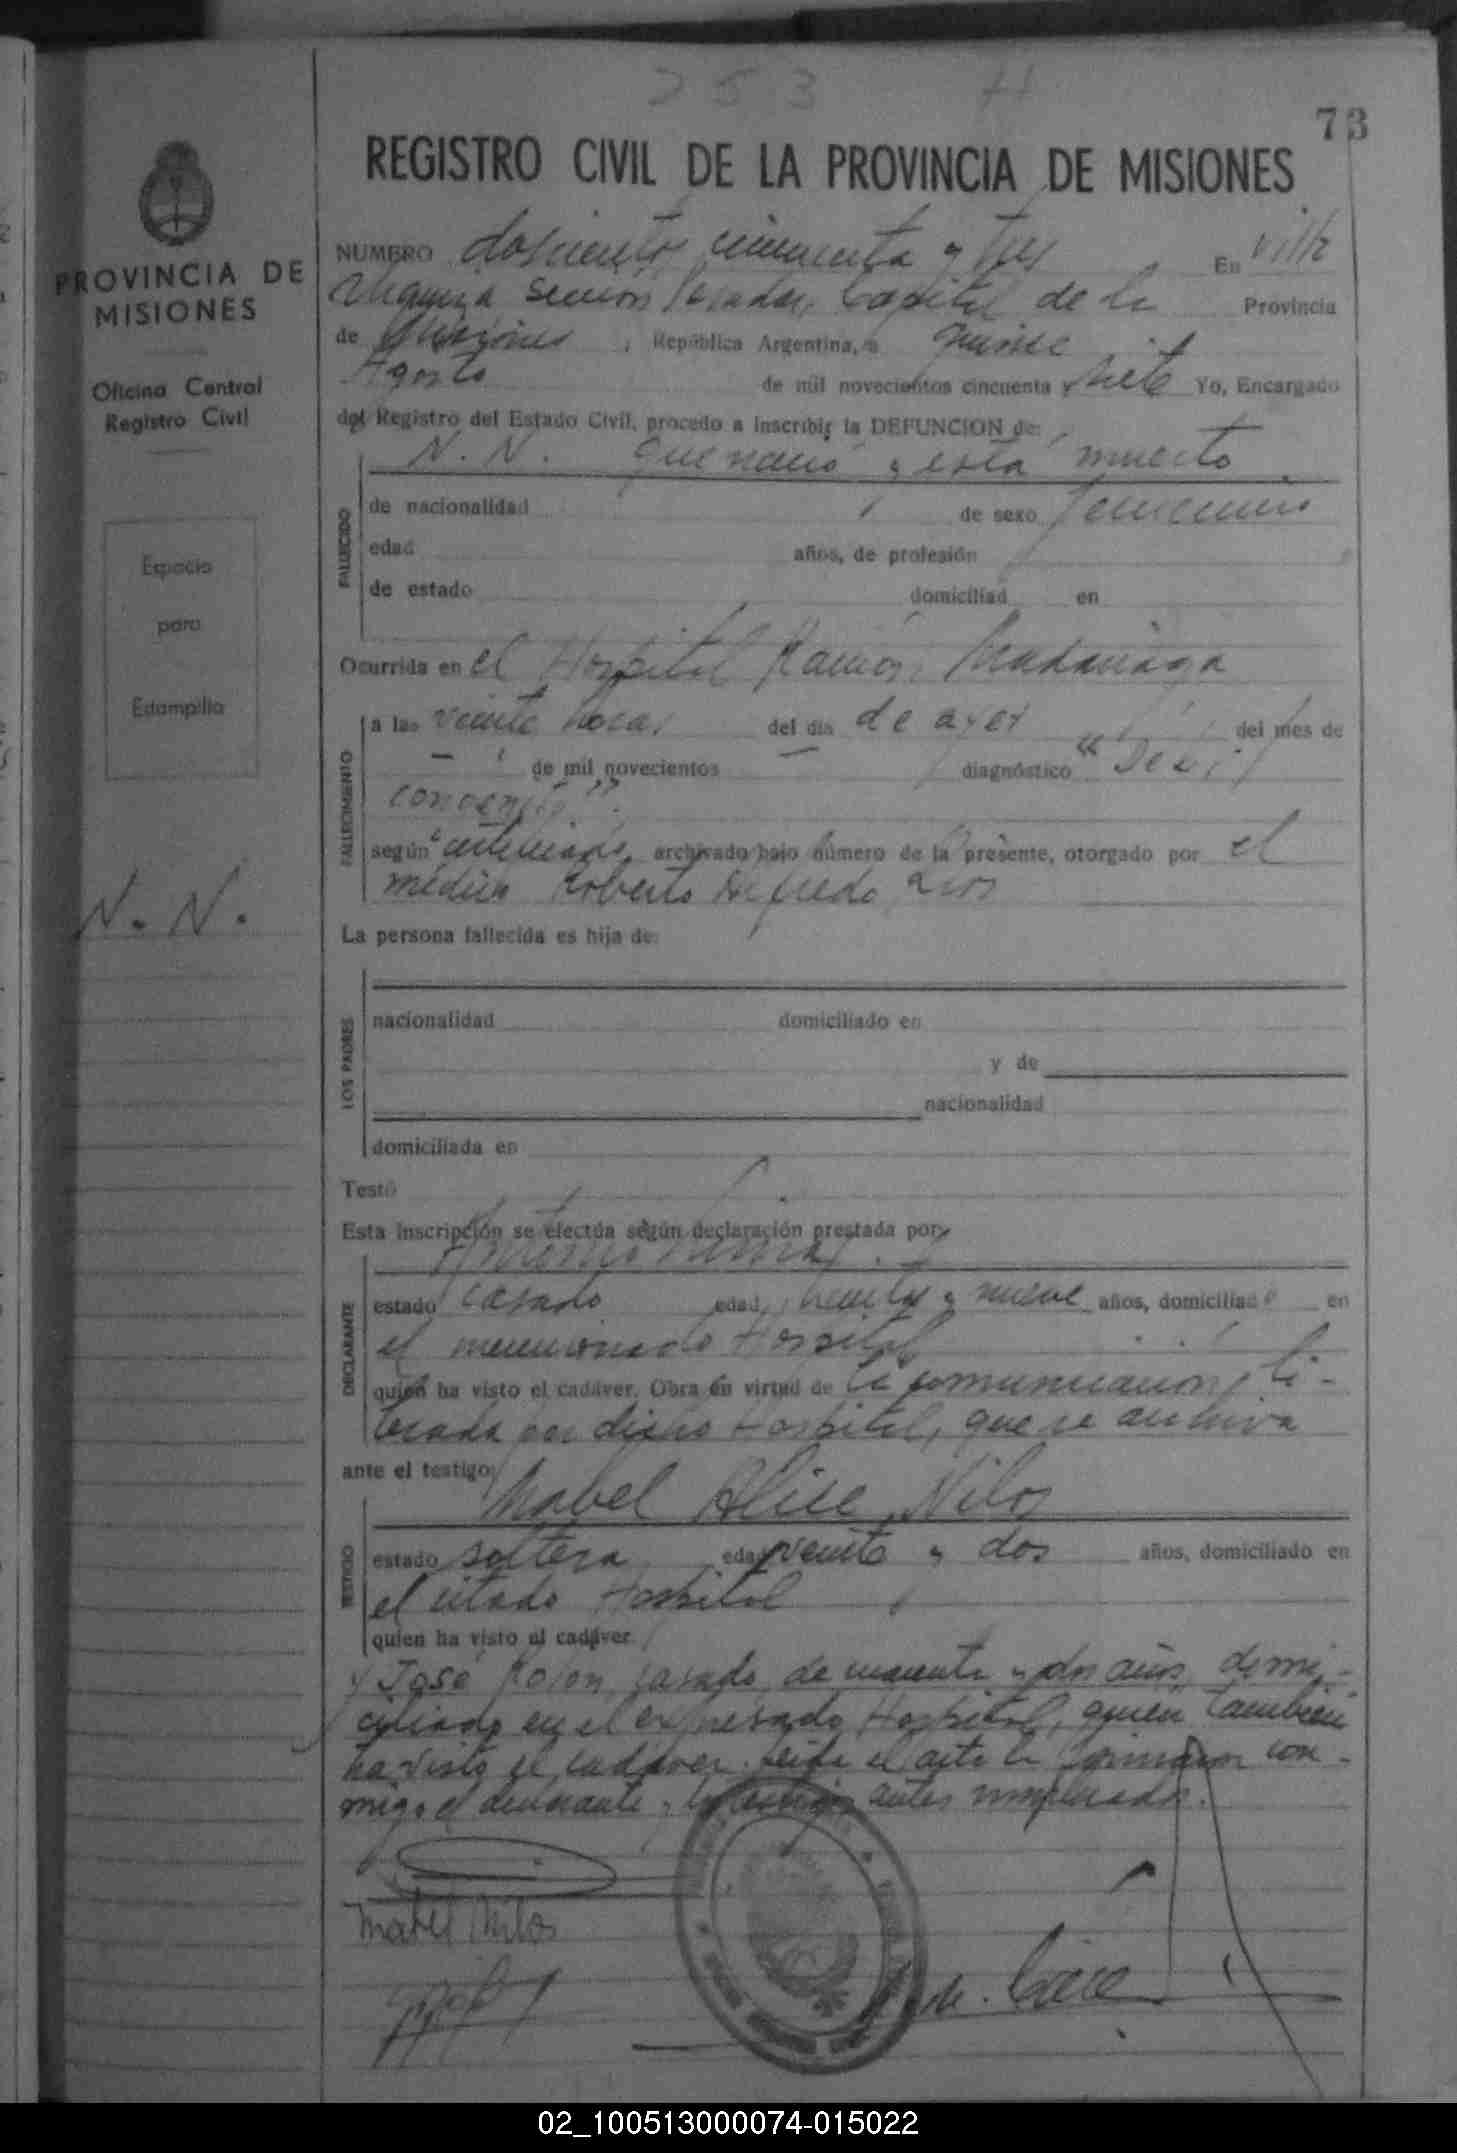 253 H
73
REGISTRO CIVIL DE LA PROVINCIA DE MISIONES
PROVINCIA DE
MISIONES
Oficina Central
Registro Civil
Espacio
para
Estampilla
N. N.
NUMERO doscientos cincuenta y tres En Villa
Urquiza Sección Posadas, Capital de la Provincia
de Misiones , República Argentina, a quince
Agosto de mil novecientos cincuenta y siete Yo, Encargado
del Registro del Estado Civil, procedo a inscribir la DEFUNCION de:
N. N. que nació y está muerto
FALLECIDO
de nacionalidad de sexo femenino
edad años, de profesión
de estado domiciliad en
Ocurrida en el Hospital Ramón Madariaga
FALLECIMIENTO
a las veinte horas del día de ayer del mes de
— de mil novecientos — diagnóstico "Debil
congenito".
según certificado archivado bajo número de la presente, otorgado por el
médico Roberto Alfredo Rios
La persona fallecida es hija de:
LOS PADRES
nacionalidad domiciliado en
y de
nacionalidad
domiciliada en
Testó
Esta inscripción se efectúa según declaración prestada por
Antonio
DECLARANTE
estado casado edad treinta y nueve años, domiciliado en
el mencionado Hospital
quien ha visto el cadáver. Obra en virtud de la comunicación li-
brada por dicho Hospital, que se archiva
ante el testigo
Mabel Alice Nilos
TESTIGO
estado soltera edad veinte y dos años, domiciliado en
el citado Hospital
quien ha visto el cadáver
y José Rolon, casado, de cuarenta y dos años, domi-
ciliado en el expresado Hospital, quien también
ha visto el cadaver. Leida el acta la firmaron con-
migo el declarante y los testigos antes nombrados.
Mabel Nilos
02_100513000074-015022